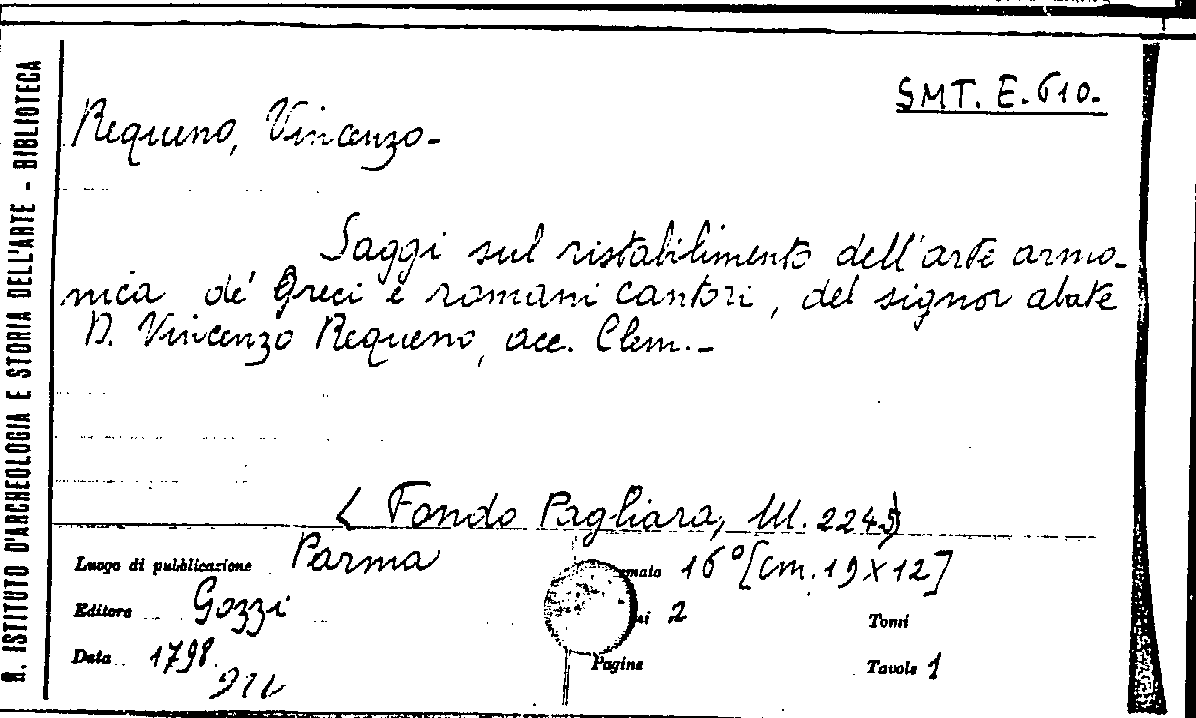 R. ISTITUTO D'ARCHEOLOGIA E STORIA DELL'ARTE - BIBLIOTECA
SMT. E. 610.
Requeno, Vincenzo-
Saggi sul ristabilimento dell'arte armo-
nica de' Greci e romani cantori, del signor abate
D. Vincenzo Requeno, acc. Clem. -
(Fondo Pagliara, M. 2245)
Luogo di pubblicazione Parma
mato 16° [cm. 19 x 12]
Editore Gozzi
mi 2
Tomi
Data 1798.
Pagine
Tavole 1